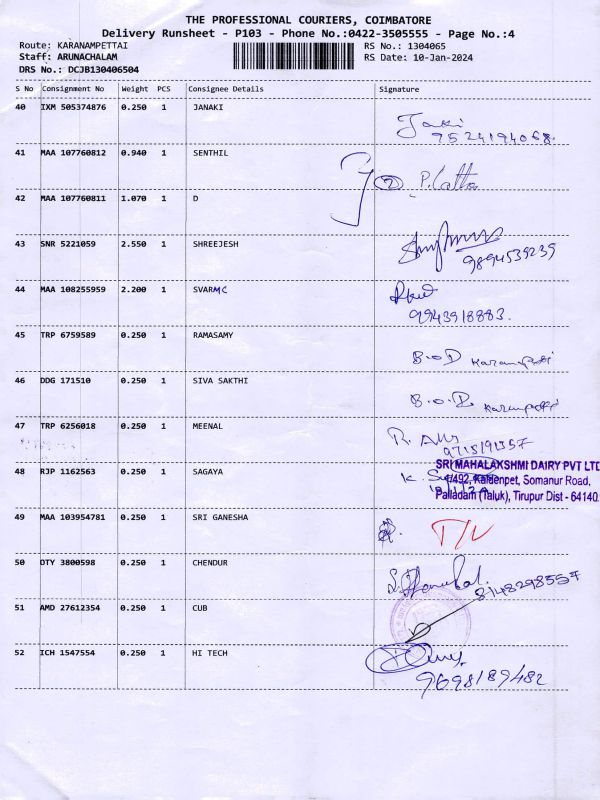 THE PROFESSIONAL COURIERS, COIMBATORE
Delivery Runsheet - P103 - Phone No.:0422-3505555 - Page No.:4
Route: KARANAMPETTAI RS No.: 1304065
Staff: ARUNACHALAM RS Date: 10-Jan-2024
DRS No.: DCJB130406504
S No Consignment No Weight PCS Consignee Details Signature
40 IXM 505374876 0.250 1 JANAKI
Janki
9524194068.
41 MAA 107760812 0.940 1 SENTHIL
② P. Latha
42 MAA 107760811 1.070 1 D
43 SNR 5221059 2.550 1 SHREEJESH
9894539239
44 MAA 108255959 2.200 1 SVARMC
9943918883.
45 TRP 6759589 0.250 1 RAMASAMY
B.O.D
46 DDG 171510 0.250 1 SIVA SAKTHI
B.O.D
47 TRP 6256018 0.250 1 MEENAL
48 RJP 1162563 0.250 1 SAGAYA
SRI MAHALAKSHMI DAIRY PVT LTD
4/492, Somanur Road,
Palladam (Taluk), Tirupur Dist - 64140
49 MAA 103954781 0.250 1 SRI GANESHA
50 OTY 3800598 0.250 1 CHENDUR
8148298557
51 AMD 27612354 0.250 1 CUB
52 ICH 1547554 0.250 1 HI TECH
9698189482